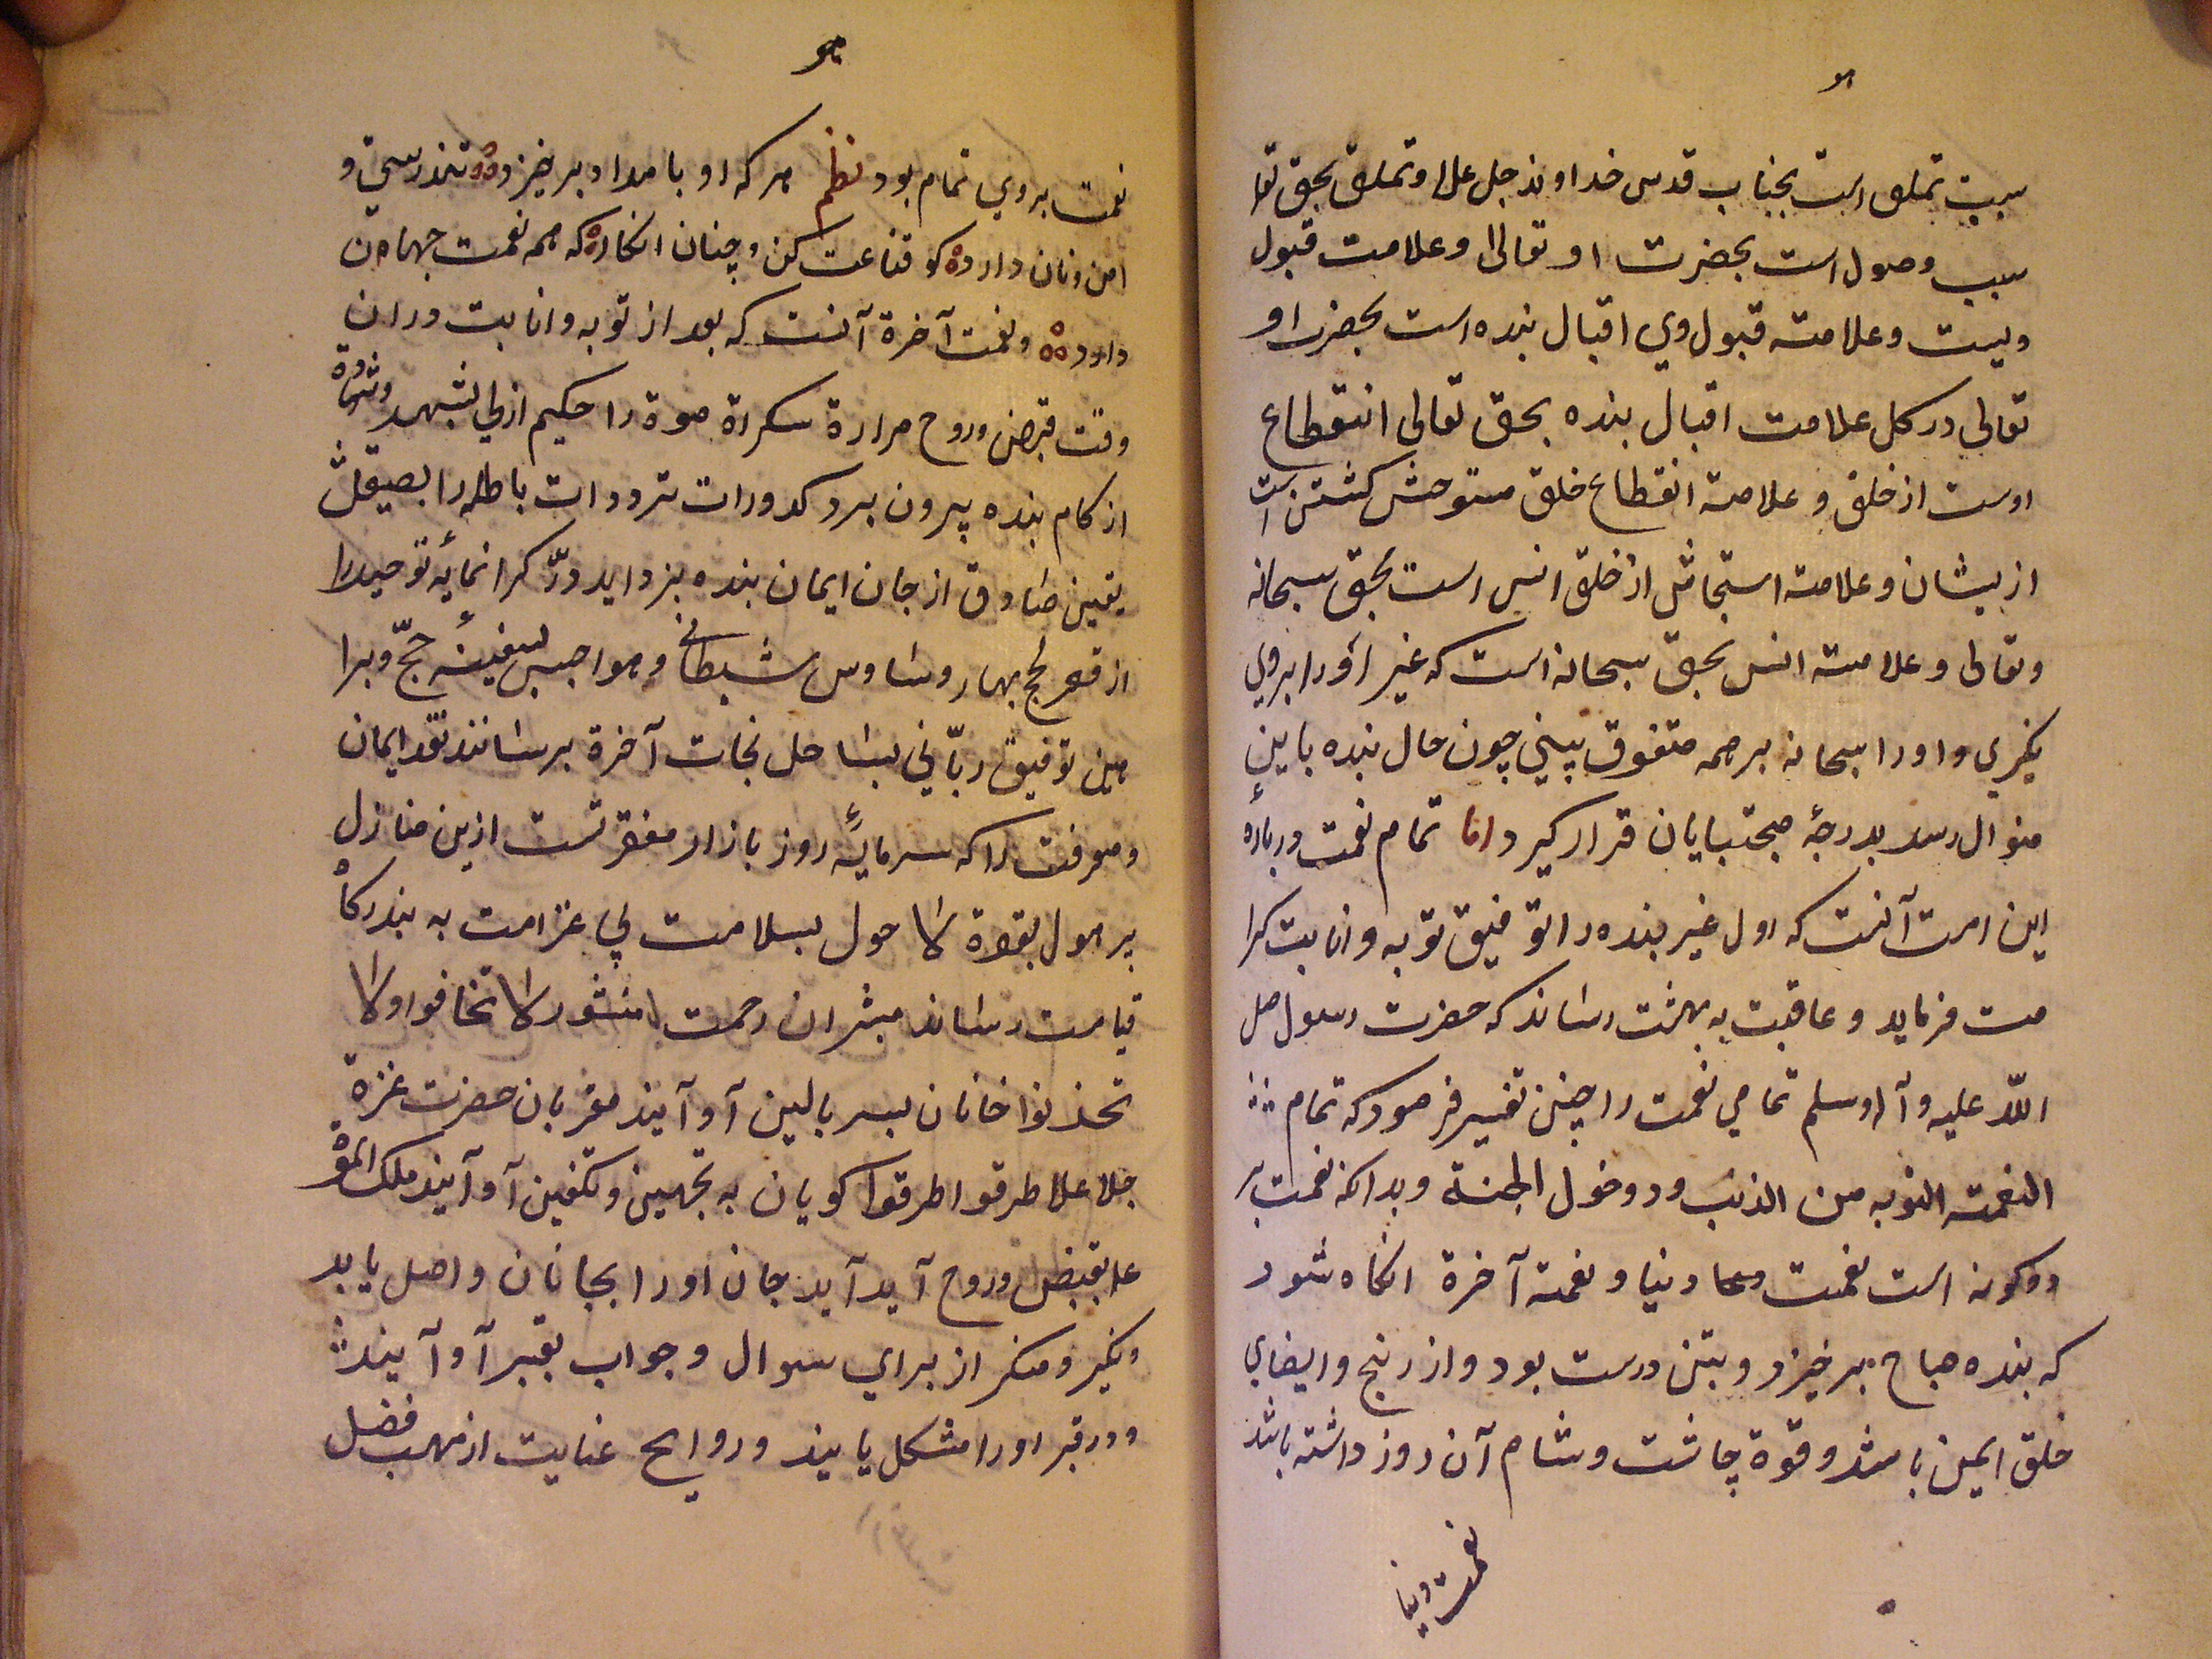 هو
سبب تملق است بجناب قدس خداوند جل علا و تملق بحق تعا
سبب وصول است بحضرت او تعالی و علامت قبول
ویست و علامت قبول وي اقبال بنده است بحضرت او
تعالی در کل علامت اقبال بنده بحق تعالی انقطاع
اوست از خلق و علامة انقطاع خلق متوحش کشتن است
ازیشان و علامة استیحاش از خلق انس است بحق سبحانه
وتعالی و علامت انس بحق سبحانه است که غیر او را بروي
نکیري و او را سبحانه بر همه متفوق بیني چون حال بنده باین
منوال رسد بدرجۀ مجتبایان قرار کیرد اما تمام نعمت درباره
این امت آنست که اول غیر بنده را توفیق توبه و انابت کرا
مت فرماید و عاقبت به بهشت رساند که حضرت رسول صلی
اللّه علیه وآله وسلم تمامي نعمت را چنین تفسیر فرمود که تمام
النعمته التوبه من الذنب ودخول الجنة وبدانکه نعمت بر
دوکونه است نعمت دنیا و نعمة آخرة انکاه شود
که بنده صباح برخیزد و بتن درست بود و از رنج و ایضاي
خلق ایمن باشد و قوة چاشت و شام آن روز داشته باشد
نعمت دنیا
هو
نعمت بروي تمام بود نظم هرکه او بامداد برخیزد تندرستي و
امن و نان دارد کو قناعت کن و چنان انکار که همه نعمت جهان
دارد و نعمت آخرة آنست که بعد از توبه و انابت در ان
وقت قبض روح مرارة سکراة موة را حکیم ازلي بشهد
از کام بنده بیرون برد کدورات ترددات باطله را بصیقل
یقین صادق از جان ایمان بنده بزداید درّ کرانمایۀ توحید را
از قعر لجج بهار وساوس شیطاني و هواجس بسفینۀ حجّ و برا
هین توفیق ربّاني بساحل نجات آخرة برساند نقد ایمان
و معرفت را که سرمایۀ روز بازار مفقرتست ازین منازل
بر هول بقوة لا حول بسلامت بي غرامت به بندرکاه
قیامت رساند مبشران رحمت منشور لا تخافوا ولا
تحذنوا خانان بسر بالین آو آیند مقربان حضرت عزة
جلا علا طرقوا طرقوا کویان به تجهیز و تکفین آو آیند ملک الموة
بقبض روح آید آید جان او را بجانان واصل یابد
و نکیر و منکر از براي سوال و جواب بقبر آو آیند
و در قبر او را مشکل یابند و روایح عنایت از مهب فضل